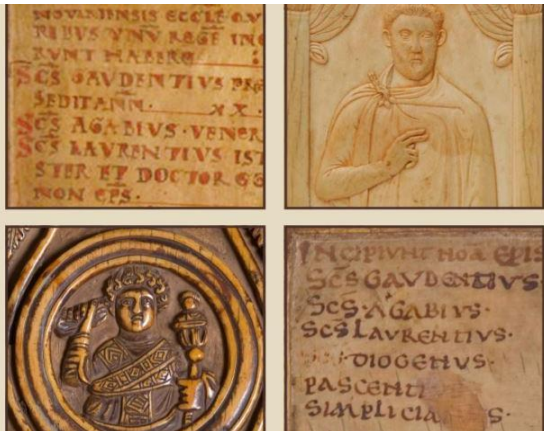 ECCLE
RIBVS VNV REGE
RVNT HABERE
SC̄S GAVDENTIVS
SEDIT ANN. XX.
SC̄S AGABIVS · VENER
SC̄S LAVRENTIVS IST
STER ET DOCTOR
NON EP̄S ·
INCIPIVNT NOA EPIS
SC̄S GAVDENTIVS
SC̄S AGABIVS ·
SC̄S LAVRENTIVS ·
DIOGENVS ·
PASCENTI
SIMPLICIA